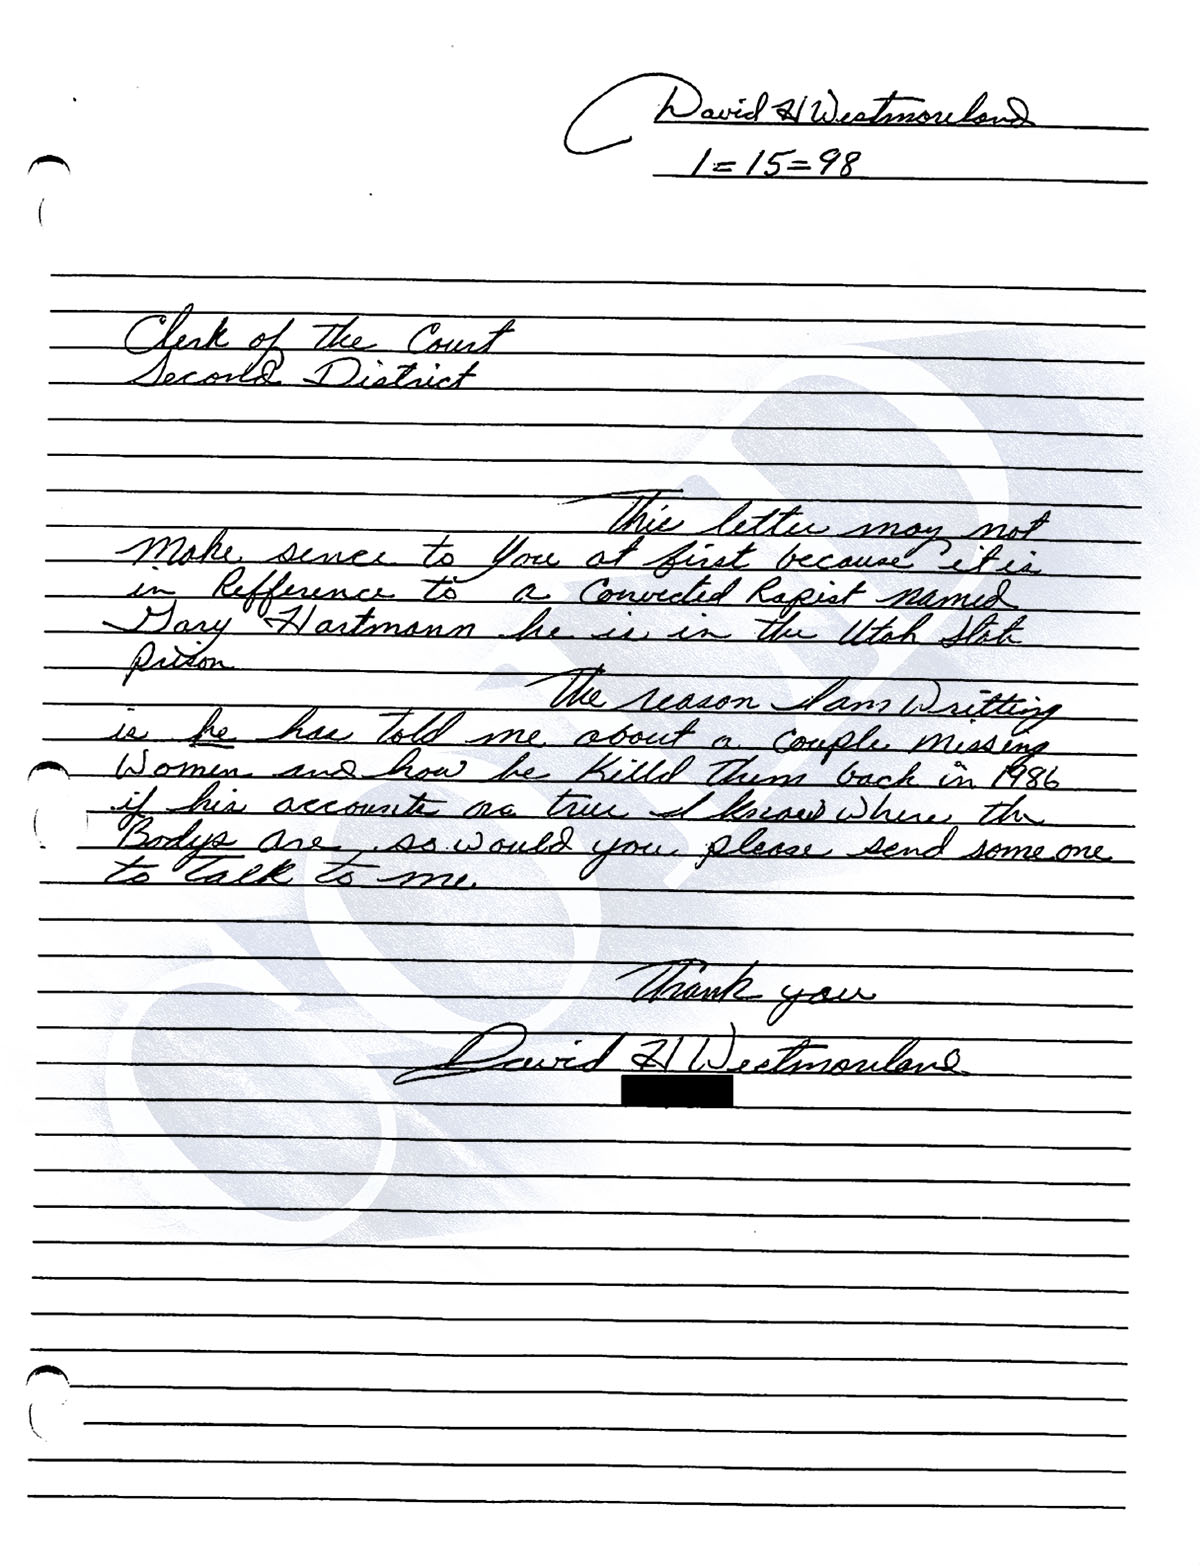 David H Westmoreland
1=15=98
Clerk of The Court
Second District
This letter may not
Make sence to You at first because it is
in Refference to a Convicted Rapist named
Gary Hartmann he is in the Utah State
prison
The reason I am Writting
is he has told me about a couple missing
Women and how he Killd Them back in 1986
if his accounts are true I know where the
Bodys are so would you please send some one
to talk to me.
Thank you
David H Westmoreland
COLD